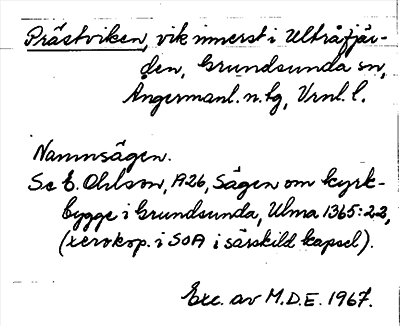 Prästviken, vik innerst i Ultråfjär-
den, Grundsunda sn,
Ångermanl. n. tg, Vrnl. l.
Namnsägen.
Se E. Ohlson, A26, Sägen om kyrk-
bygge i Grundsunda, Ulma 1365:22,
(xerokop. i SOA i särskild kapsel).
Exc. av M.D.E. 1967.